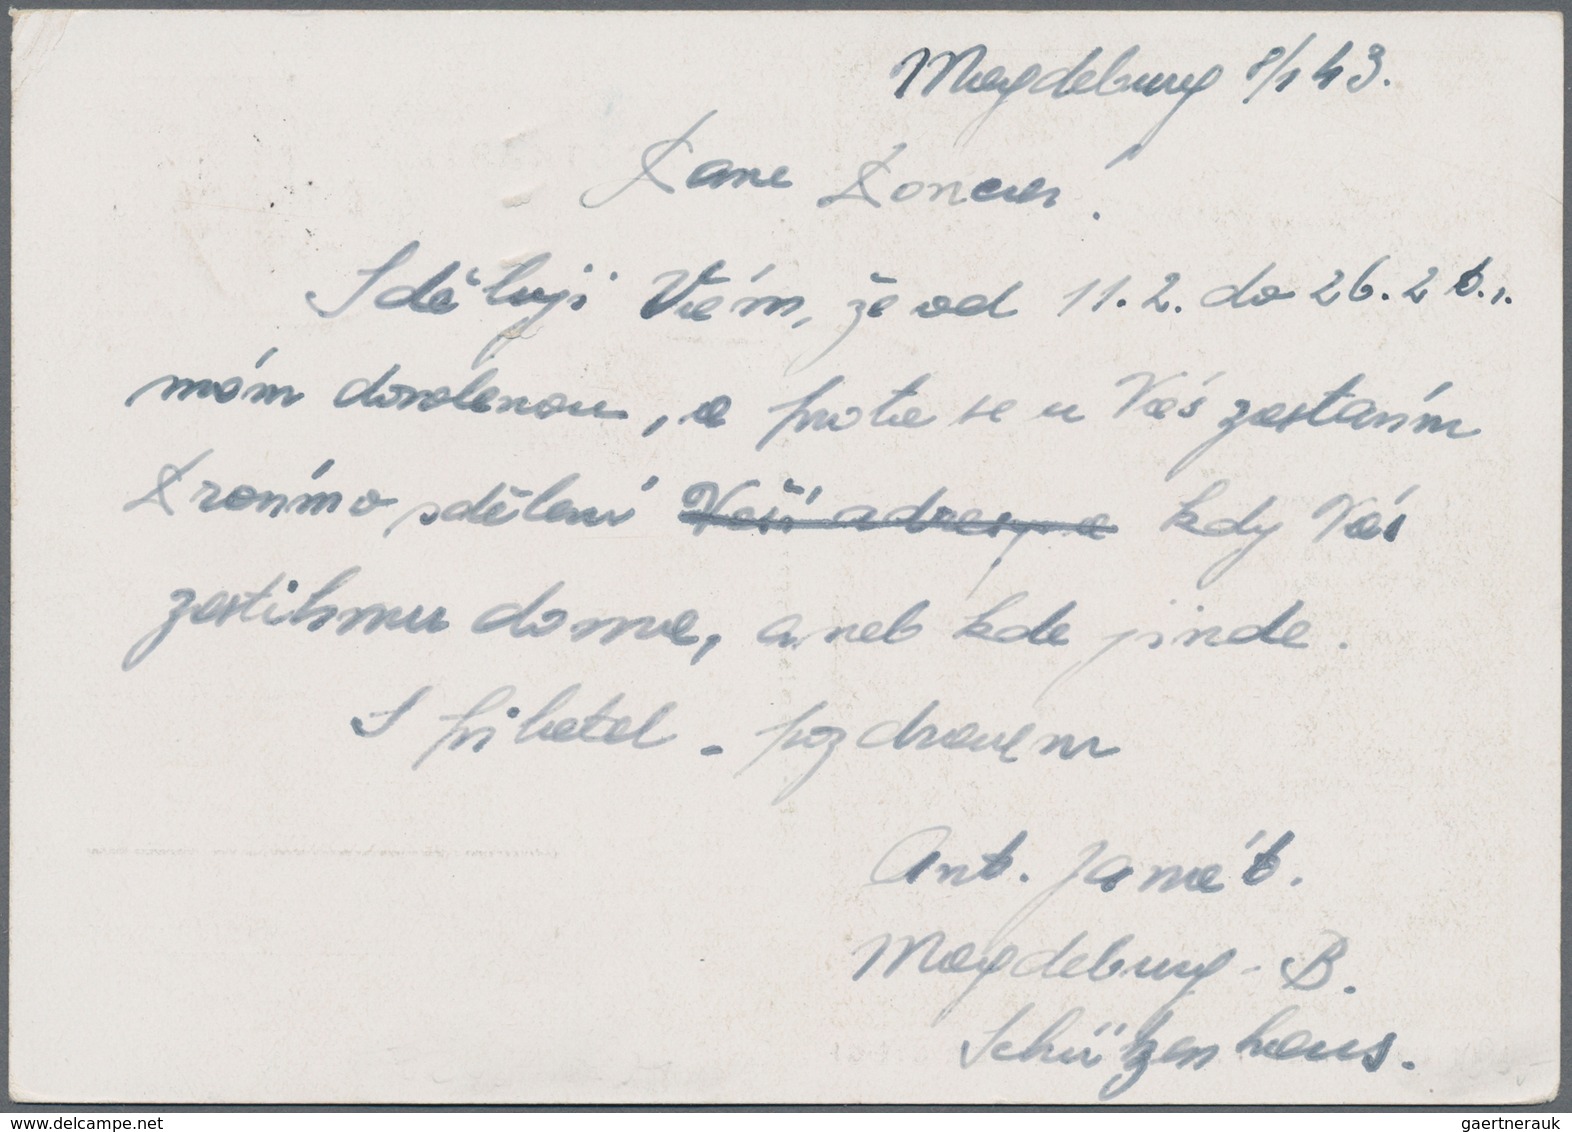 Magdeburg 8/1 43.
Pane
Sděluji Vám, že od 11.2. do 26.2 t.r.
mám dovolenou, a proto se u Vás zastavím
Prosím o sdělení Vaší adresy a kdy Vás
zastihnu doma, aneb kde jinde.
S přátel. pozdravem
Ant. Jamét.
Magdeburg - B.
Schützenhaus.
www.delcampe.net
gaertnerauk